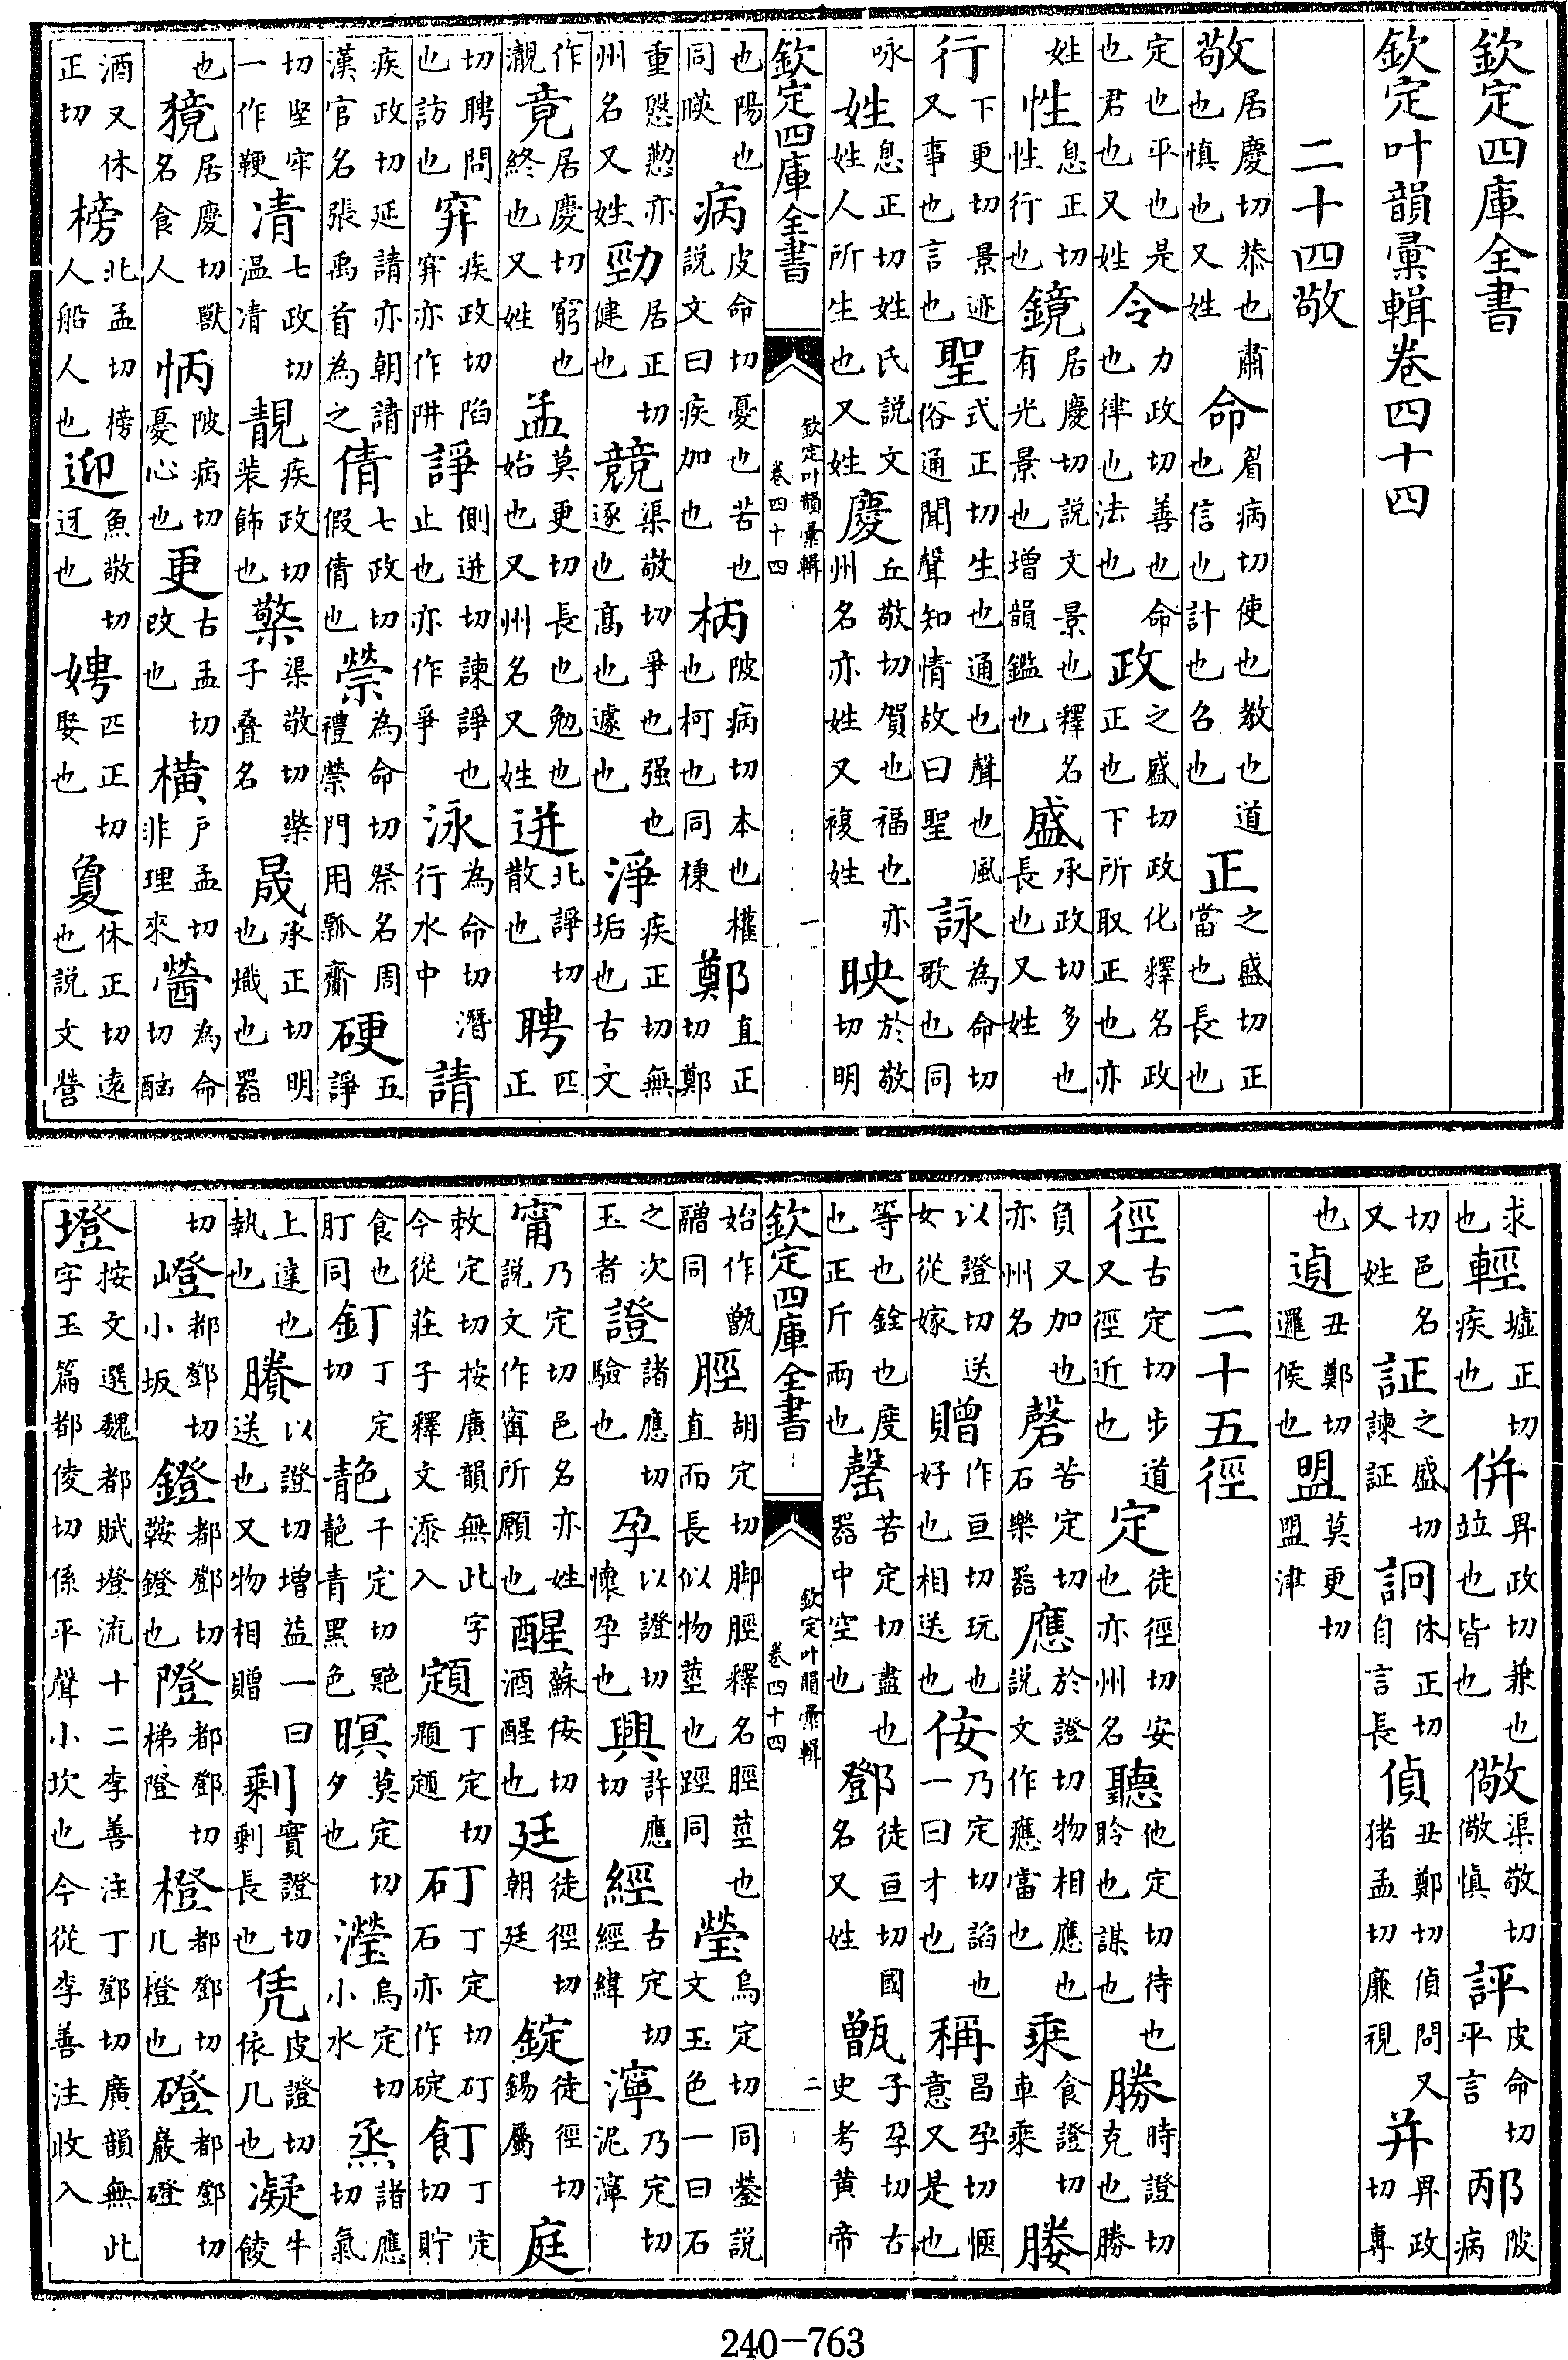 欽定四庫全書
欽定叶韻彚輯卷四十四
二十四敬
敬居慶切恭也肅也慎也又姓命眉病切使也教也道也信也計也召也正之盛切正當也長也
定也平也是也君也又姓令力政切善也命也律也法也政之盛切政化釋名政正也下所取正也亦
姓性息正切性行也鏡居慶切說文景也釋名有光景也增韻鑑也盛承政切多也長也又姓
行下更切景迹又事也言也聖式正切生也通也聲也風俗通聞聲知情故曰聖詠為命切歌也同
咏姓息正切姓氏說文姓人所生也又姓慶丘敬切賀也福也亦州名亦姓又複姓映於敬切明
欽定四庫全書 欽定叶韻彚輯卷四十四 一
也陽也同暎病皮命切憂也苦也說文曰疾加也柄陂病切本也權也柯也同棅鄭直正切鄭
重慇懃亦州名又姓勁居正切健也競渠敬切爭也强也逐也高也遽也淨疾正切無垢也古文
作瀞竟居慶切窮也終也又姓孟莫更切長也勉也始也又州名又姓迸北諍切散也聘匹正
切聘問也訪也穽疾政切陷穽亦作阱諍側迸切諫諍也止也亦作爭泳為命切潛行水中請
疾政切延請亦朝請漢官名張禹首為之倩七政切假倩也禜為命切祭名周禮禜門用瓢齎硬五諍
切堅牢一作鞕凊七政切温凊靚疾政切裝飾也檠渠敬切檠子疊名晟承正切明也熾也器
也獍居慶切獸名食人怲陂病切憂心也更古孟切改也横户孟切非理來醟為命切酗
酒又休正切榜北孟切榜人船人也迎魚敬切迓也娉匹正切娶也敻休正切遠也說文營
求也輕墟正切疾也併畀政切兼也竝也皆也儆渠敬切儆慎評皮命切平言邴陂病
切邑名又姓証之盛切諫証詗休正切自言長偵丑鄭切偵問又猪孟切廉視并畀政切專
也遉丑鄭切邏候也盟莫更切盟津
二十五徑
徑古定切步道又徑近也定徒徑切安也亦州名聽他定切待也聆也謀也勝時證切克也勝
負又加也亦州名磬苦定切石樂器應於證切物相應也說文作應當也乗食證切車乗媵
以證切送女從嫁贈作亘切玩也好也相送也佞乃定切諂也一曰才也稱昌孕切愜意又是也
等也銓也度也正斤兩也罄苦定切盡也器中空也鄧徒亘切國名又姓甑子孕切古史考黄帝
欽定四庫全書 欽定叶韻彚輯卷四十四 二
始作甑䰝同脛胡定切脚脛釋名脛莖也直而長似物莖也踁同瑩烏定切同鎣說文玉色一曰石
之次玉者證諸應切驗也孕以證切懷孕也興許應切經古定切經緯濘乃定切泥濘
甯乃定切邑名亦姓說文作寗所願也醒蘇佞切酒醒也廷徒徑切朝廷錠徒徑切錫屬庭
敕定切按廣韻無此字今從莊子釋文添入顁丁定切題顁矴丁定切矴石亦作碇飣丁定切貯
食也同釘丁定切靘千定切艴靘青黑色暝莫定切夕也瀅烏定切小水烝諸應切氣
上達也執也賸以證切增益一曰送也又物相贈剩實證切剩長也凭皮證切依几也凝牛餕
切嶝都鄧切小坂鐙都鄧切鞍鐙也隥都鄧切梯隥橙都鄧切几橙也磴都鄧切巖磴
墱按文選魏都賦墱流十二李善注丁鄧切廣韻無此字玉篇都倰切係平聲小坎也今從李善注收入
240-763